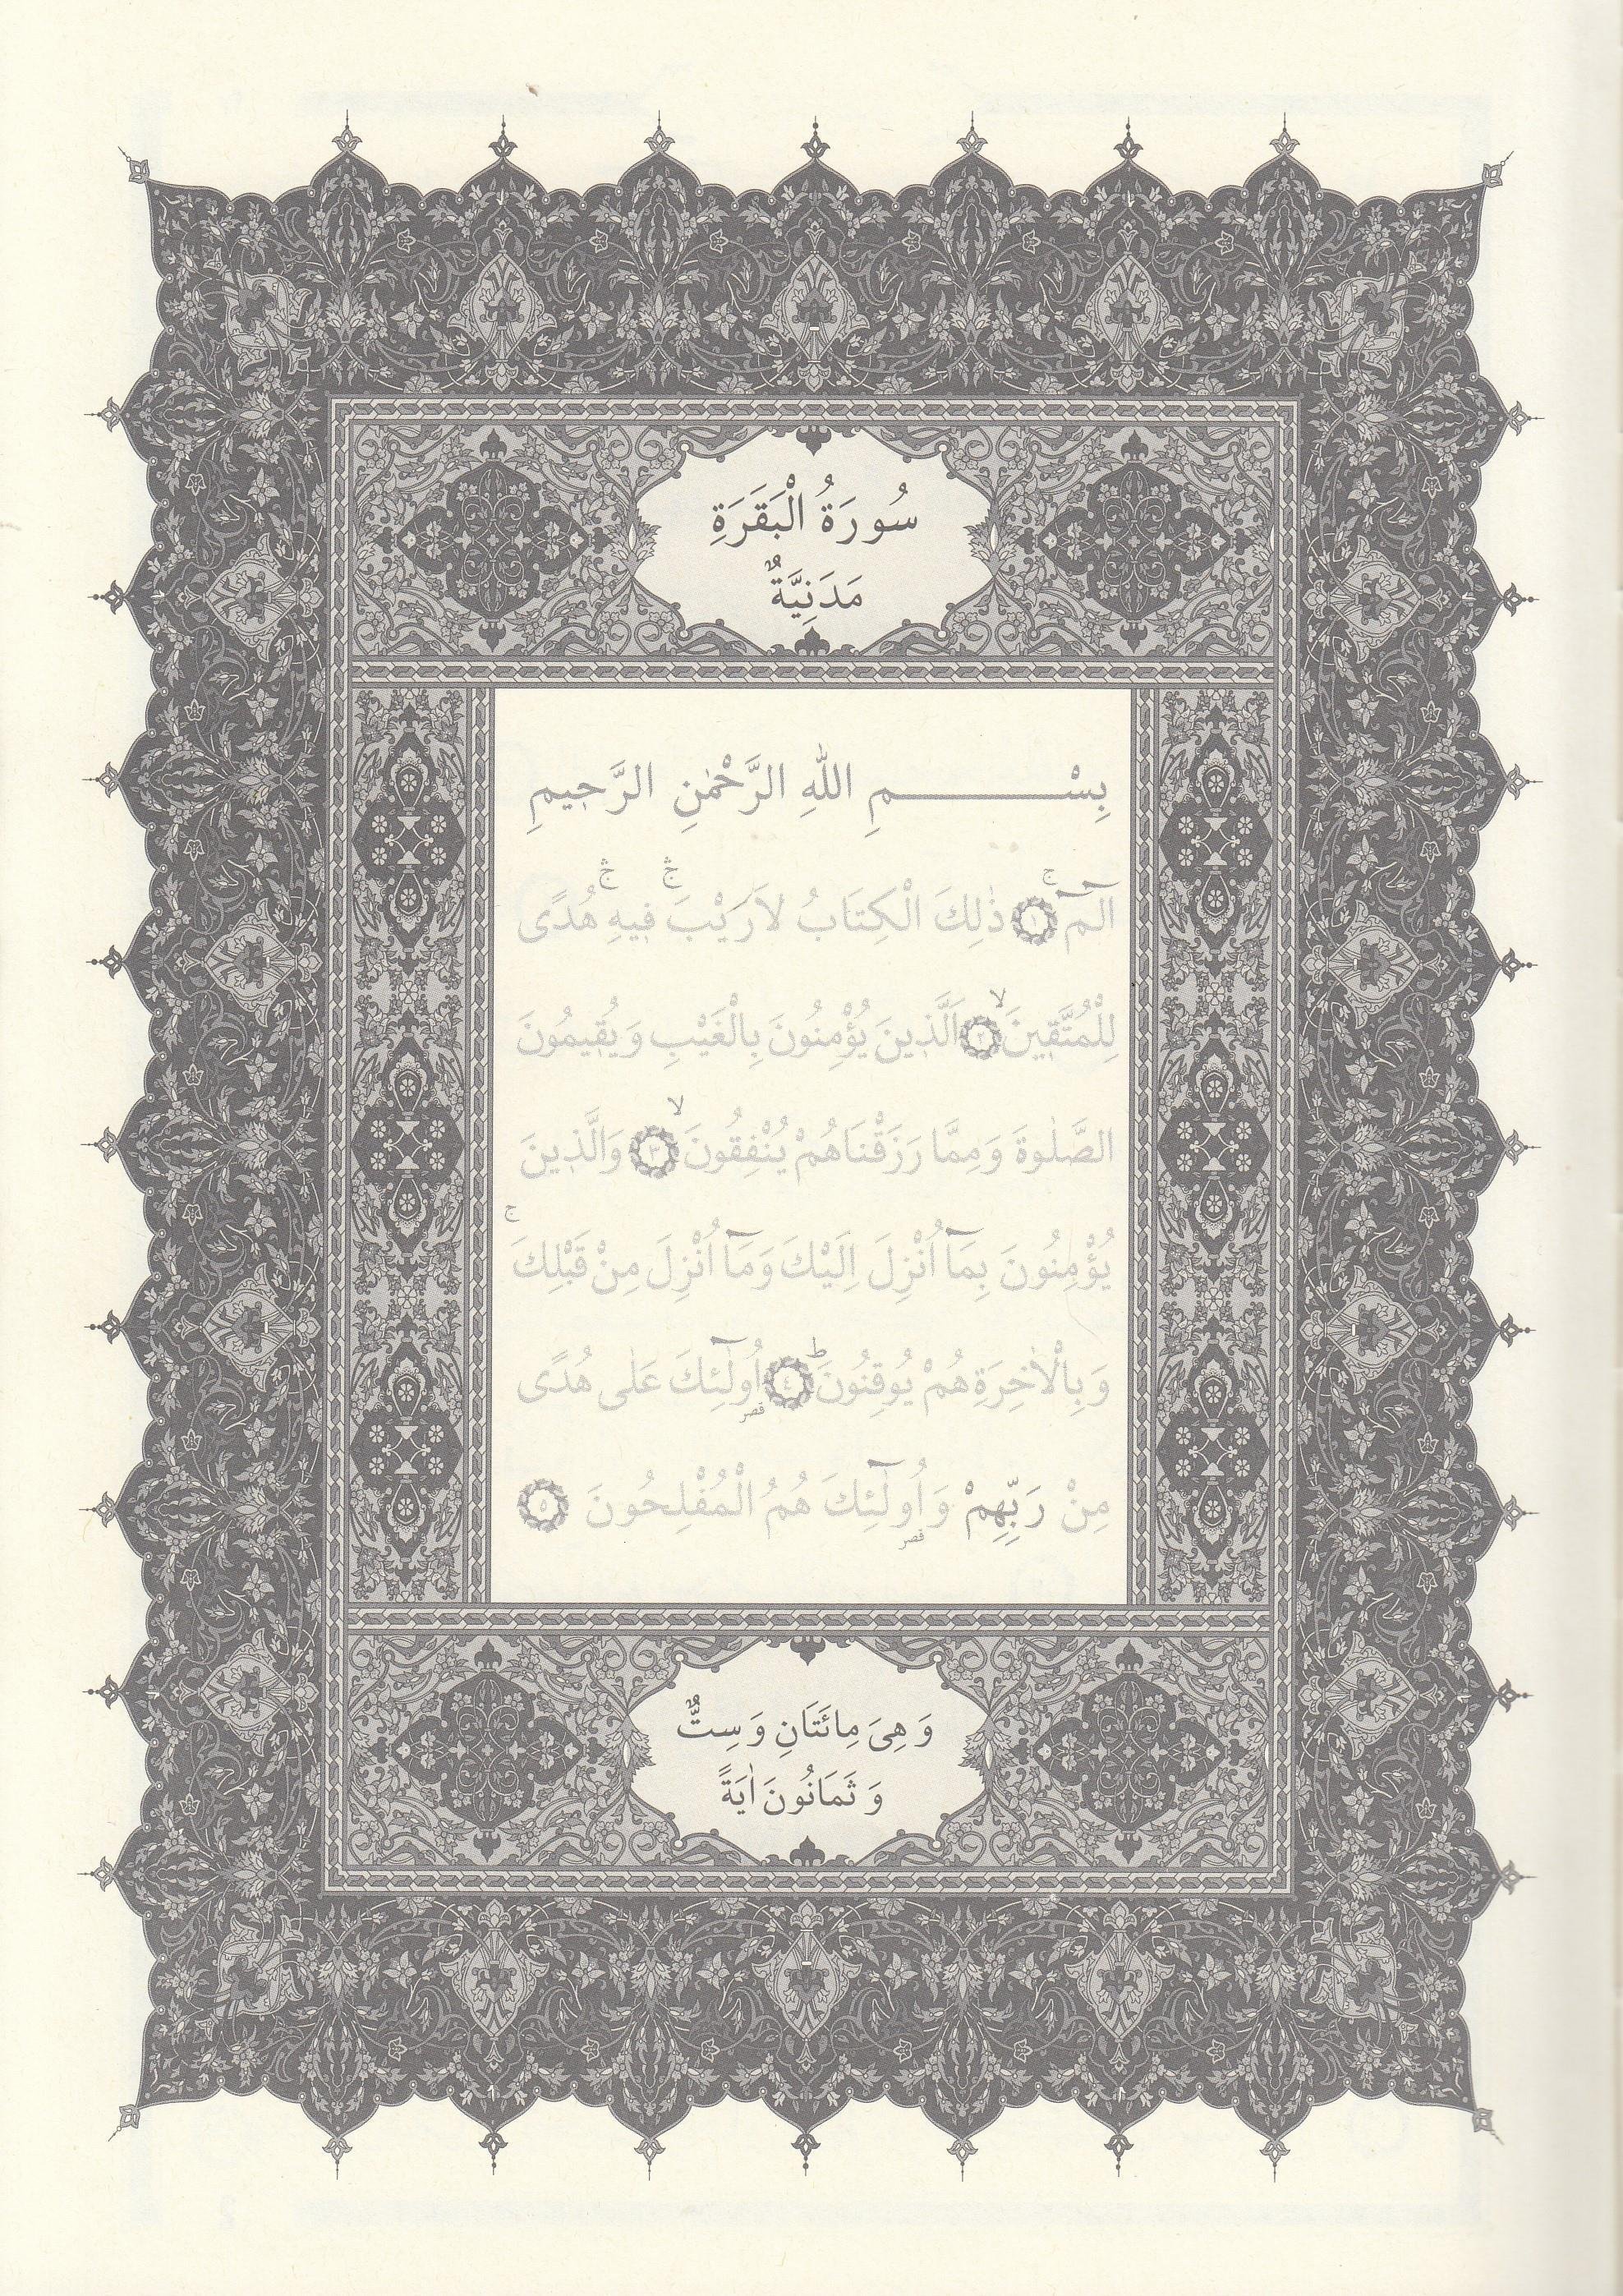 سُورَةُ الْبَقَرَةِ
مَدَنِيَّةٌ
بِسْمِ اللّٰهِ الرَّحْمٰنِ الرَّحٖيمِ
الٓمٓ ۚ ﴿١﴾ ذٰلِكَ الْكِتَابُ لَا رَيْبَ ۛ فٖيهِ ۛ هُدًى
لِلْمُتَّقٖينَ ۙ ﴿٢﴾ اَلَّذٖينَ يُؤْمِنُونَ بِالْغَيْبِ وَيُقٖيمُونَ
الصَّلٰوةَ وَمِمَّا رَزَقْنَاهُمْ يُنْفِقُونَ ۙ ﴿٣﴾ وَالَّذٖينَ
يُؤْمِنُونَ بِمَٓا اُنْزِلَ اِلَيْكَ وَمَٓا اُنْزِلَ مِنْ قَبْلِكَ ۚ
وَبِالْاٰخِرَةِ هُمْ يُوقِنُونَ ؕ ﴿٤﴾ اُو۬لٰٓئِكَ عَلٰى هُدًى
قصر
مِنْ رَبِّهِمْ وَاُو۬لٰٓئِكَ هُمُ الْمُفْلِحُونَ ﴿٥﴾
قصر
وَهِىَ مِائَتَانِ وَسِتٌّ
وَثَمَانُونَ اٰيَةً